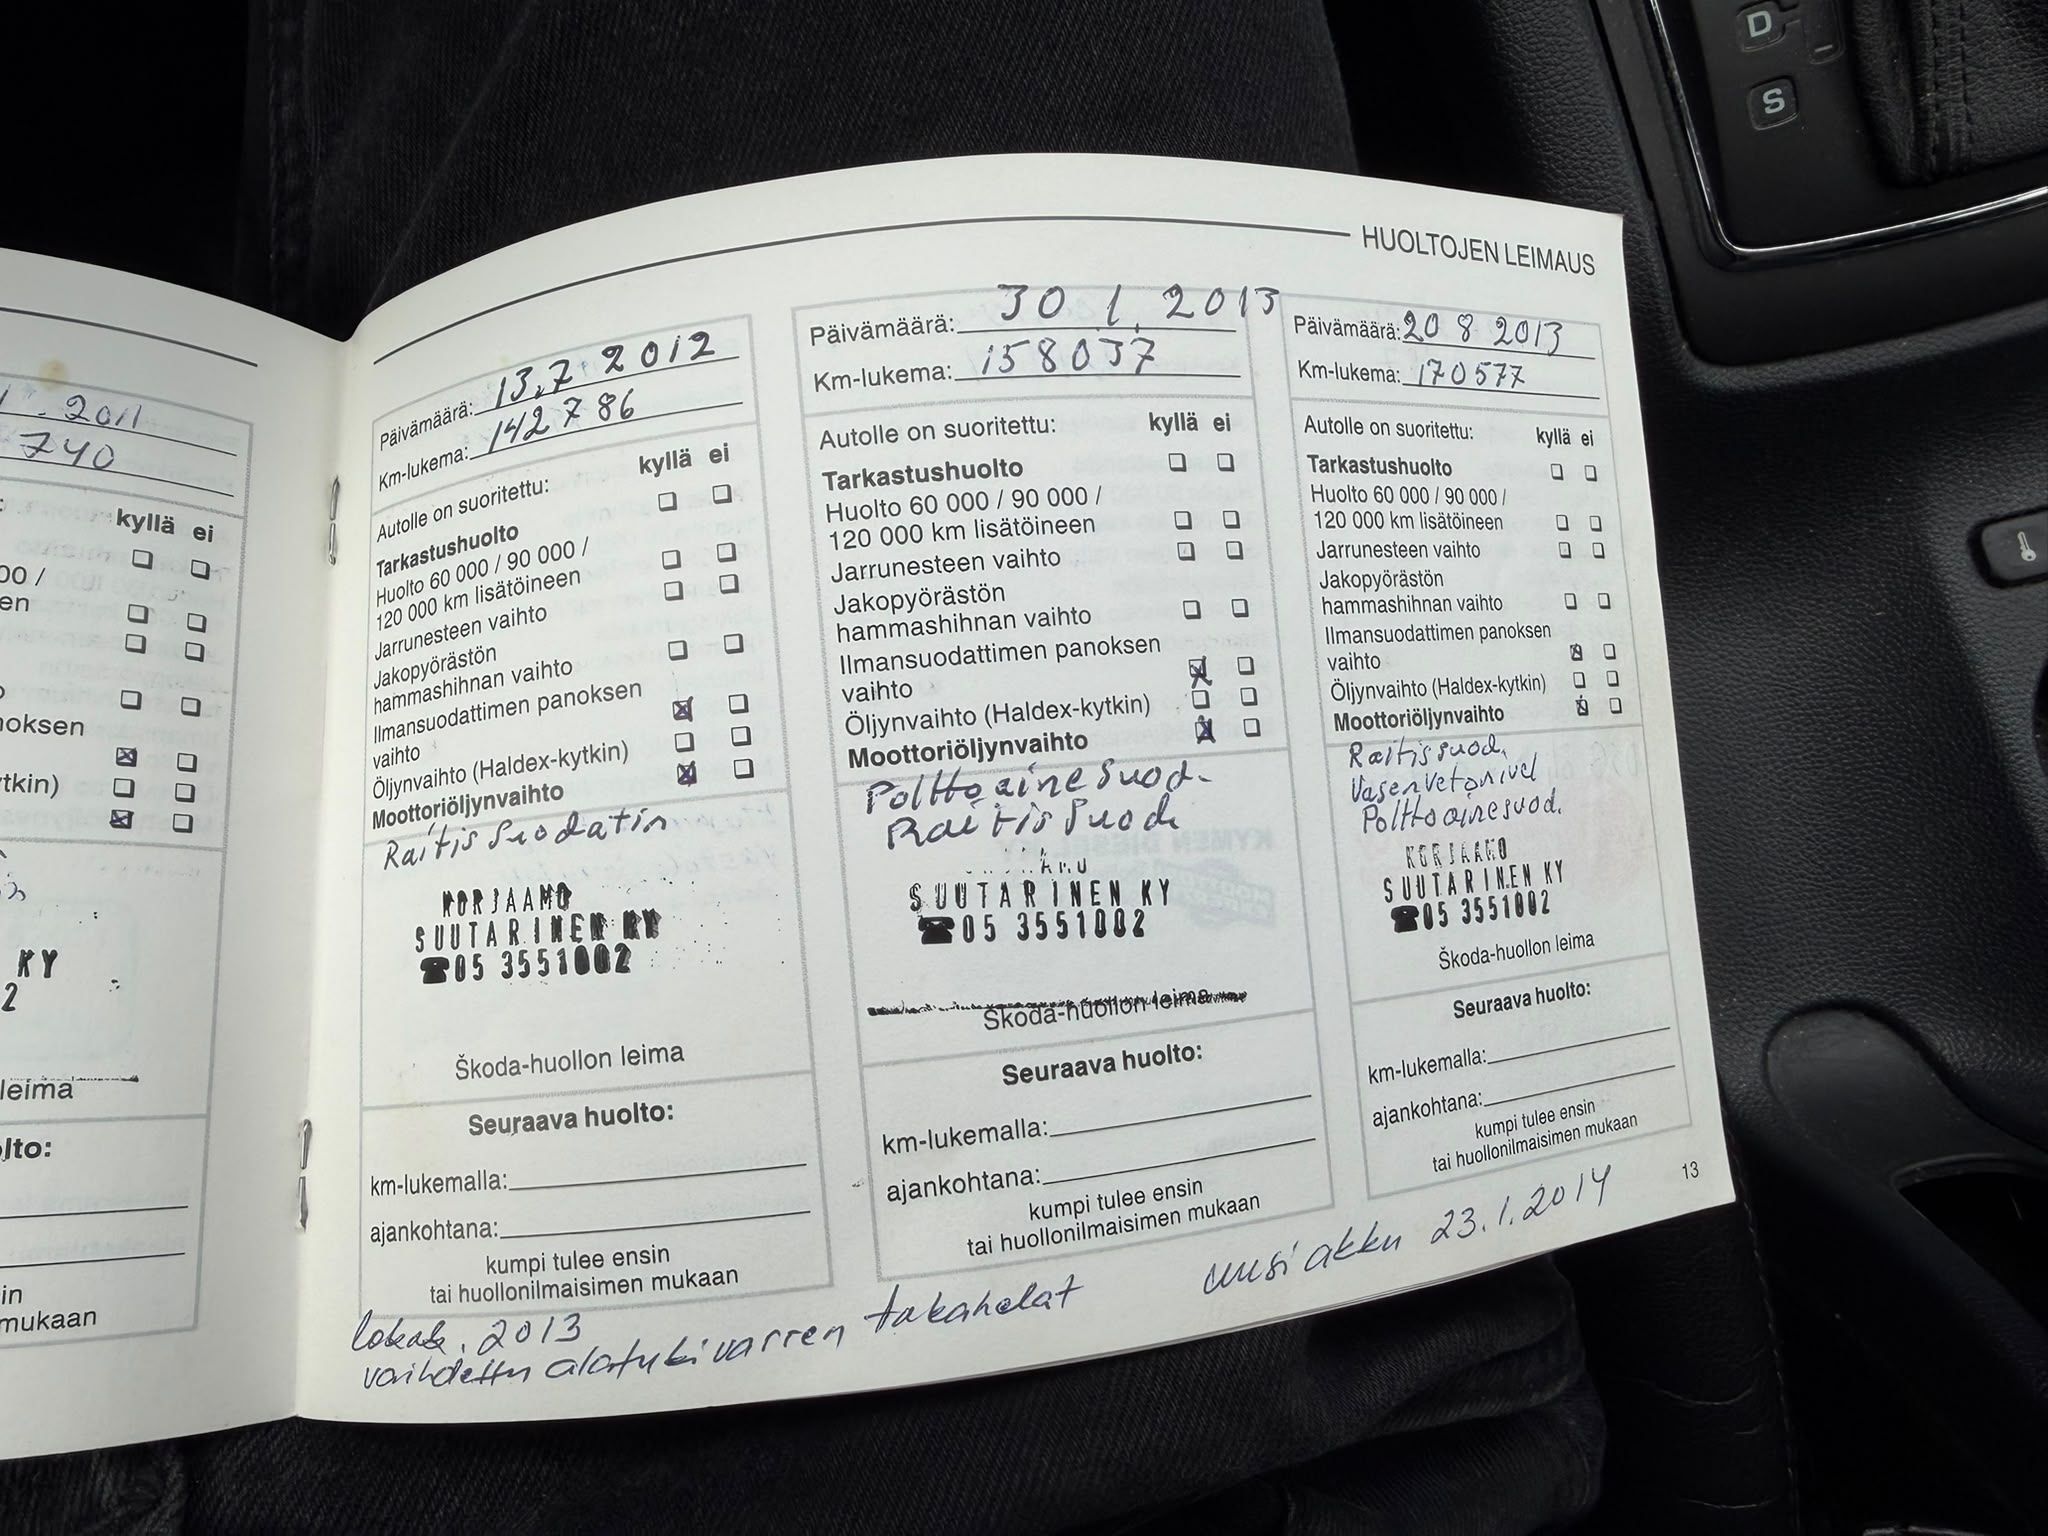 HUOLTOJEN LEIMAUS
2011
740
kyllä ei
leima
mukaan
Päivämäärä: 13.7 2012
Km-lukema: 142 786
Autolle on suoritettu: kyllä ei
Tarkastushuolto
Huolto 60 000 / 90 000 /
120 000 km lisätöineen
Jarrunesteen vaihto
Jakopyörästön
hammashihnan vaihto
Ilmansuodattimen panoksen
vaihto
Öljynvaihto (Haldex-kytkin)
Moottoriöljynvaihto
Raitissuodatin
KORJAAMO
SUUTARINEN KY
☎05 3551002
Škoda-huollon leima
Seuraava huolto:
km-lukemalla:
ajankohtana:
kumpi tulee ensin
tai huollonilmaisimen mukaan
Päivämäärä: 30 1. 2013
Km-lukema: 158037
Autolle on suoritettu: kyllä ei
Tarkastushuolto
Huolto 60 000 / 90 000 /
120 000 km lisätöineen
Jarrunesteen vaihto
Jakopyörästön
hammashihnan vaihto
Ilmansuodattimen panoksen
vaihto
Öljynvaihto (Haldex-kytkin)
Moottoriöljynvaihto
Polttoainesuod.
Raitissuod.
SUUTARINEN KY
☎05 3551002
Škoda-huollon leima
Seuraava huolto:
km-lukemalla:
ajankohtana:
kumpi tulee ensin
tai huollonilmaisimen mukaan
Päivämäärä: 20 8 2013
Km-lukema: 170577
Autolle on suoritettu: kyllä ei
Tarkastushuolto
Huolto 60 000 / 90 000 /
120 000 km lisätöineen
Jarrunesteen vaihto
Jakopyörästön
hammashihnan vaihto
Ilmansuodattimen panoksen
vaihto
Öljynvaihto (Haldex-kytkin)
Moottoriöljynvaihto
Raitissuod.
Vasen vetonivel
Polttoainesuod.
KORJAAMO
SUUTARINEN KY
☎05 3551002
Škoda-huollon leima
Seuraava huolto:
km-lukemalla:
ajankohtana:
kumpi tulee ensin
tai huollonilmaisimen mukaan
13
lokak. 2013
vaihdettu alatukivarren takahelat
uusi akku 23.1.2014
D
S